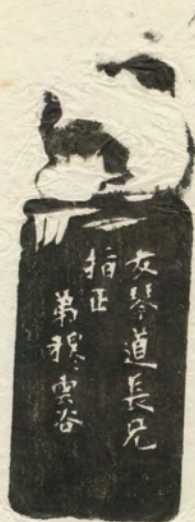 友琴道長兄
指正
弟穆雲谷